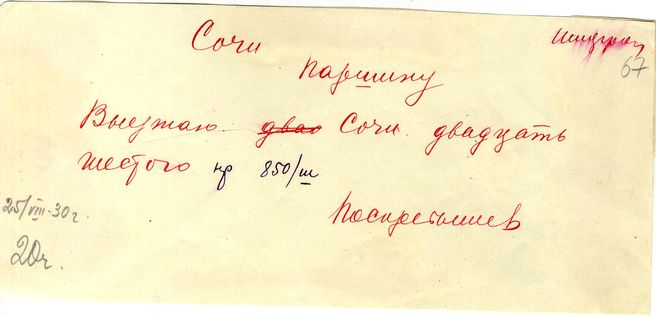 Сочи
шифром
67
Паршину
Выезжаю два Сочи двадцать
шестого нр 850/ш
Поскребышев
25/VIII-30г.
20ч.